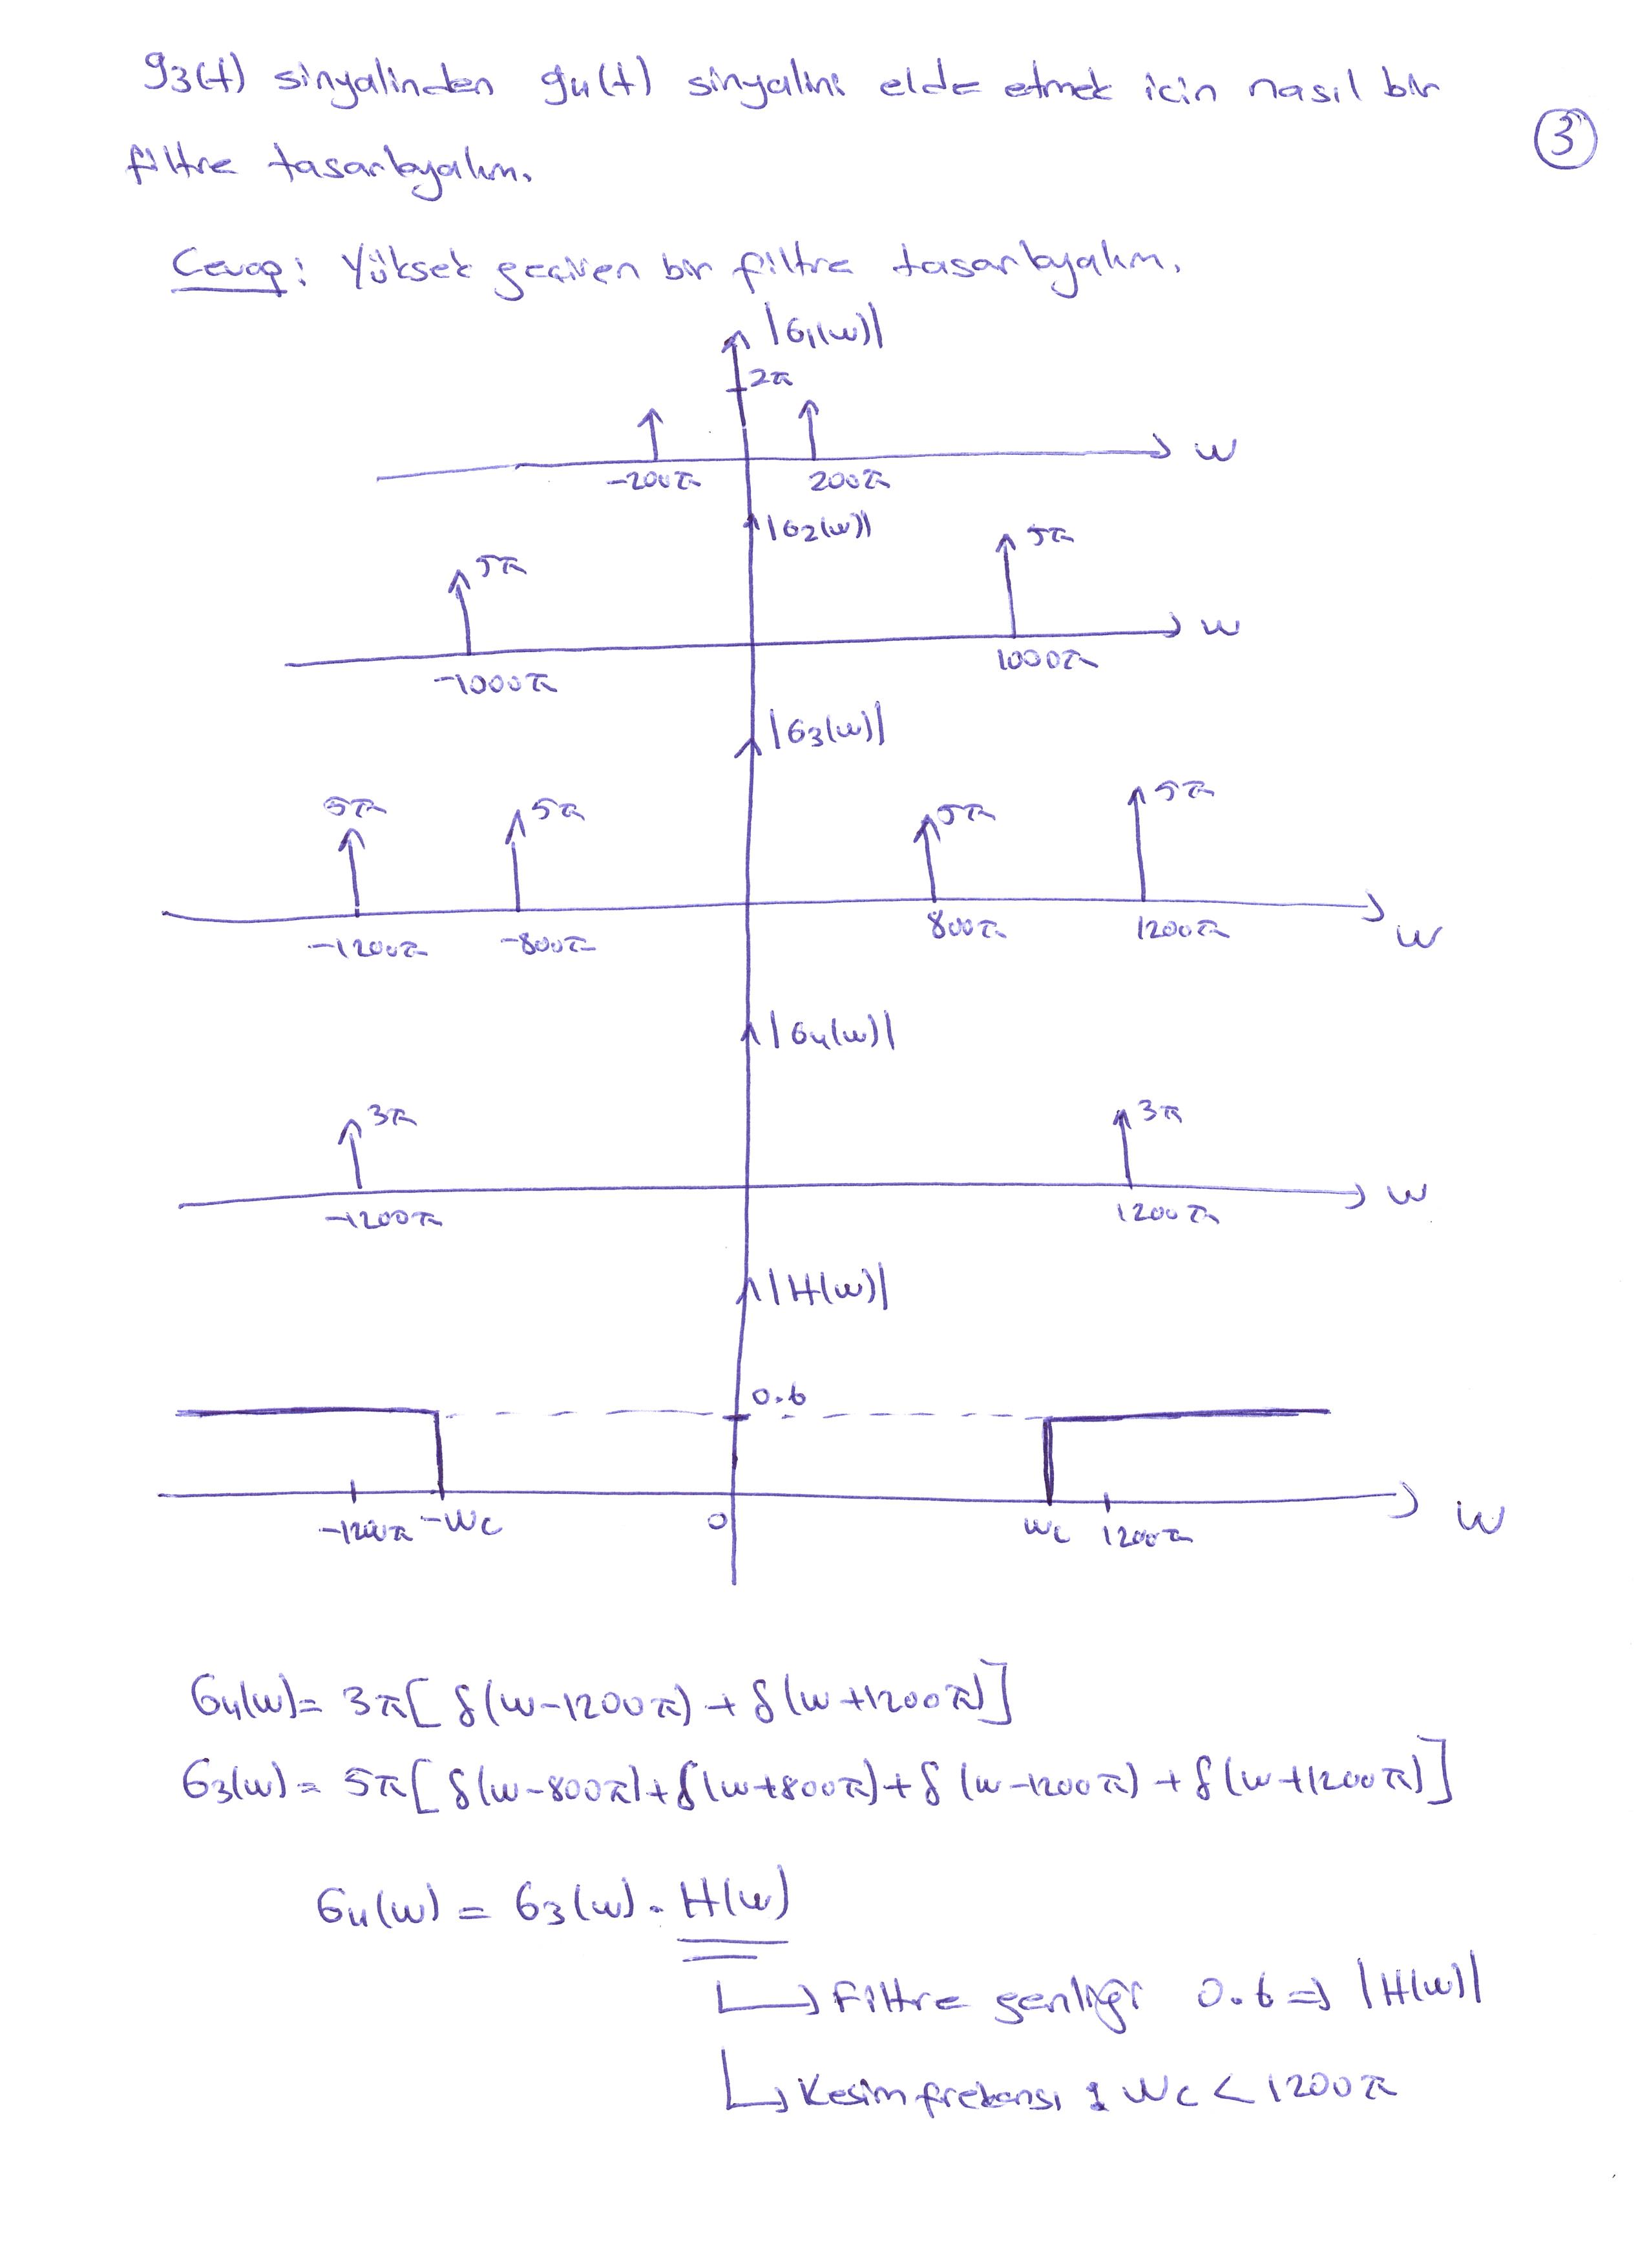 g3(t) sinyalinden g4(t) sinyalini elde etmek için nasıl bir
3
filtre tasarlayalım.
Cevap: Yüksek geçiren bir filtre tasarlayalım.
|G1(w)|
2π
w
-200π 200π
|G2(w)|
5π 5π
w
-1000π 1000π
|G3(w)|
5π 5π 5π 5π
-1200π -800π 800π 1200π
w
|G4(w)|
3π 3π
w
-1200π 1200π
|H(w)|
0.6
-1200π -wc 0 wc 1200π w
G4(w)= 3π[δ(w-1200π)+δ(w+1200π)]
G3(w)= 5π[δ(w-800π)+δ(w+800π)+δ(w-1200π)+δ(w+1200π)]
G4(w) = G3(w).H(w)
Filtre genliği 0.6 ⇒ |H(w)|
Kesim frekansı : wc < 1200π